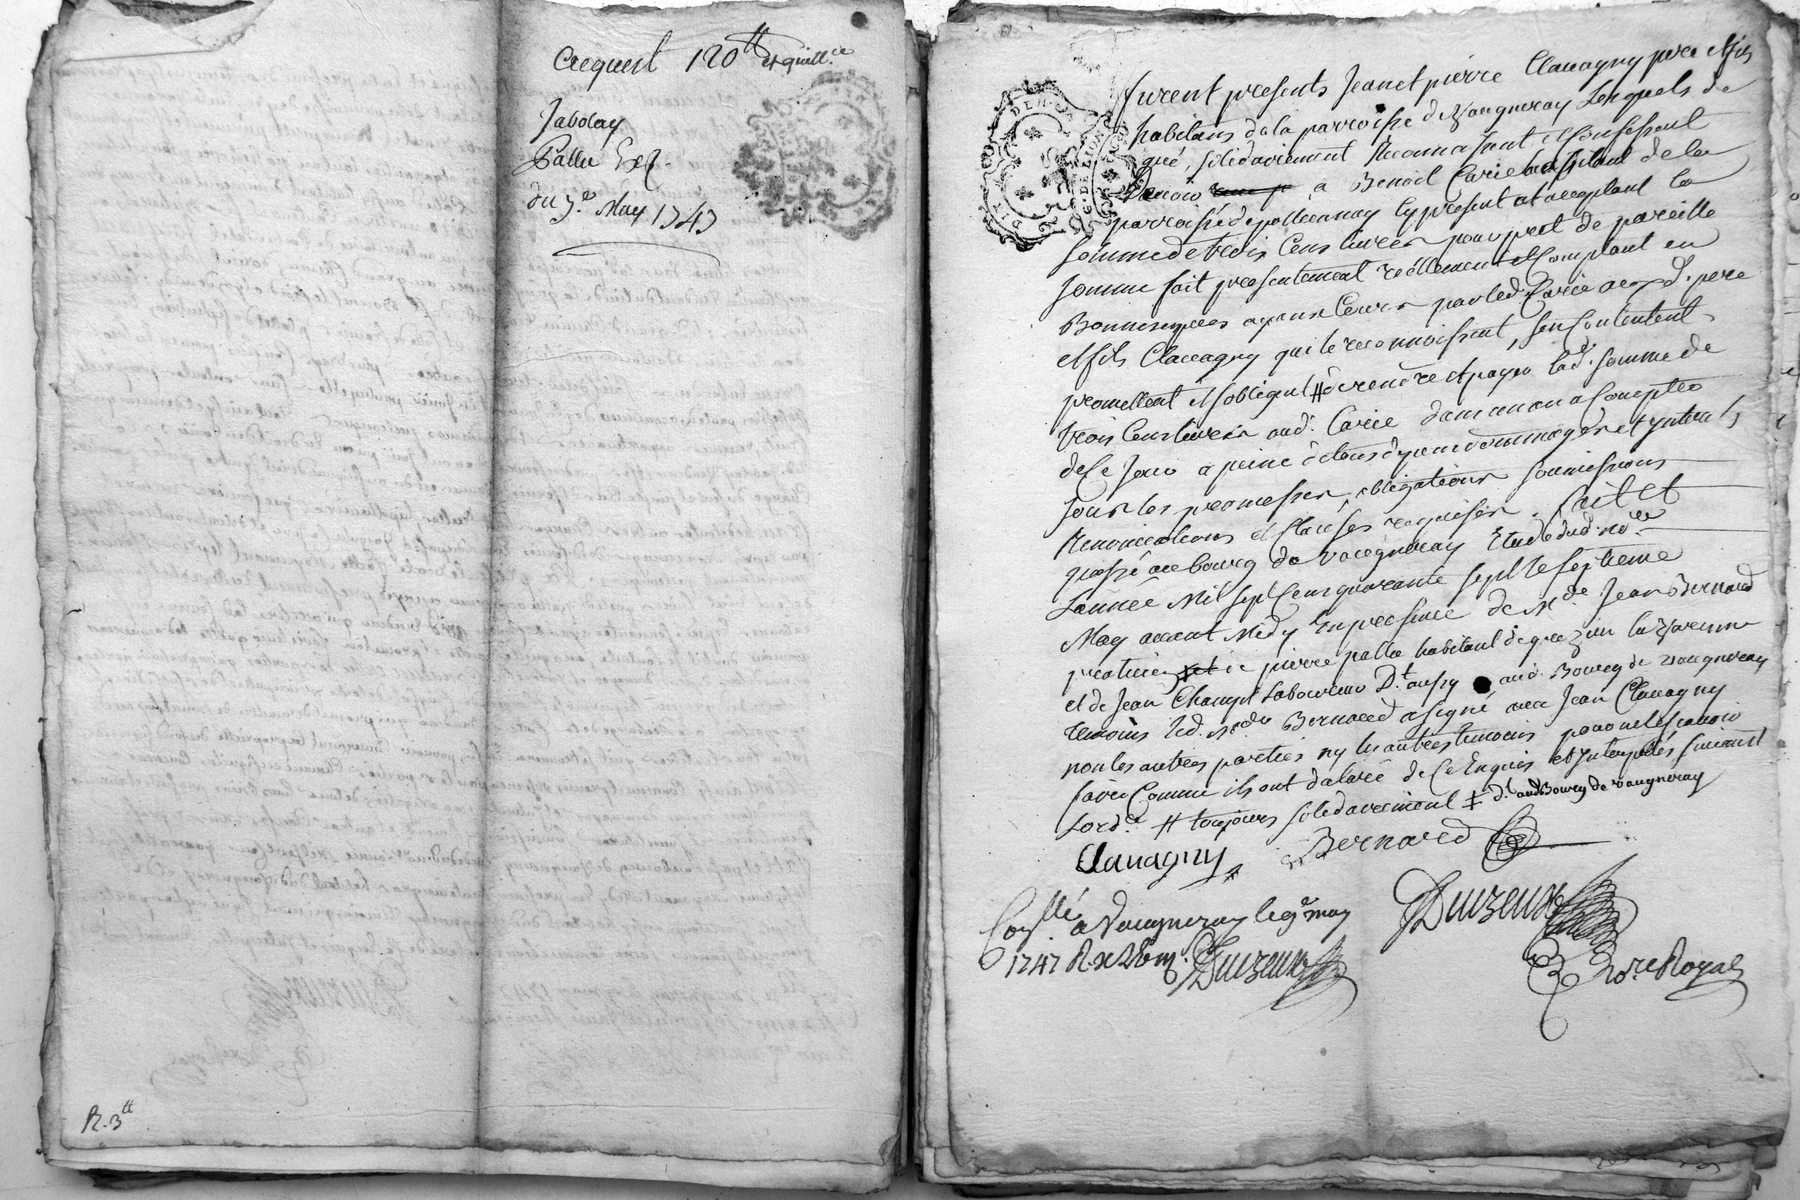 acquest 120ᵗᵗ et quitt.ce
Jabolay
Pallu
du 7.e May 1747
R. 3ᵗᵗ
furent presents Jean et pierre Clavagny pere et fils
habitans de la parroisse de Vaugneray Lesquels de
gré, solidairement Reconnaissent et Confessent
Devoir a Benoit Carie habitant de la
parroisse de pollionnay Cy present et acceptant la
somme de trois Cens livres pour prest de pareille
somme fait presentement reellement et Comptant en
Bonnes especes ayans Cours par led. Carie auxd. pere
et fils Clavagny qui le reconnoissent, sen Contentent
promettent et sobligent # de rendre et payer lad. somme de
trois Cens livres aud. Carie dans un an a Compter
de Ce Jour a peine de tous depens dommages et Interets
sous les promesses, obligations soumissions
Renonciations et Clauses requises. fait et
passé au bourg de vaugneray Etude dud. no.re
L'année Mil sept Cens quarante sept le septieme
May avant Midy En presence de M.e Jean Bernard
praticien et de pierre pallu habitant de grezieu la varenne
et de Jean Champt Laboureur D.t aussy aud. Bourg de vaugneray
temoins led. M.e Bernard a signé avec Jean Clavagny
non les autres parties ny les autres temoins pour ne le scavoir
faire Comme ils ont declaré de Ce Enquis et Interpellés suivant
Lord.ce # toujours solidairement ‡ d.t aud Bourg de vaugneray
Clavagny Bernard
Conllé a Vaugneray le 9e may Duizeux
1747 R. Duizeux No.re Royal